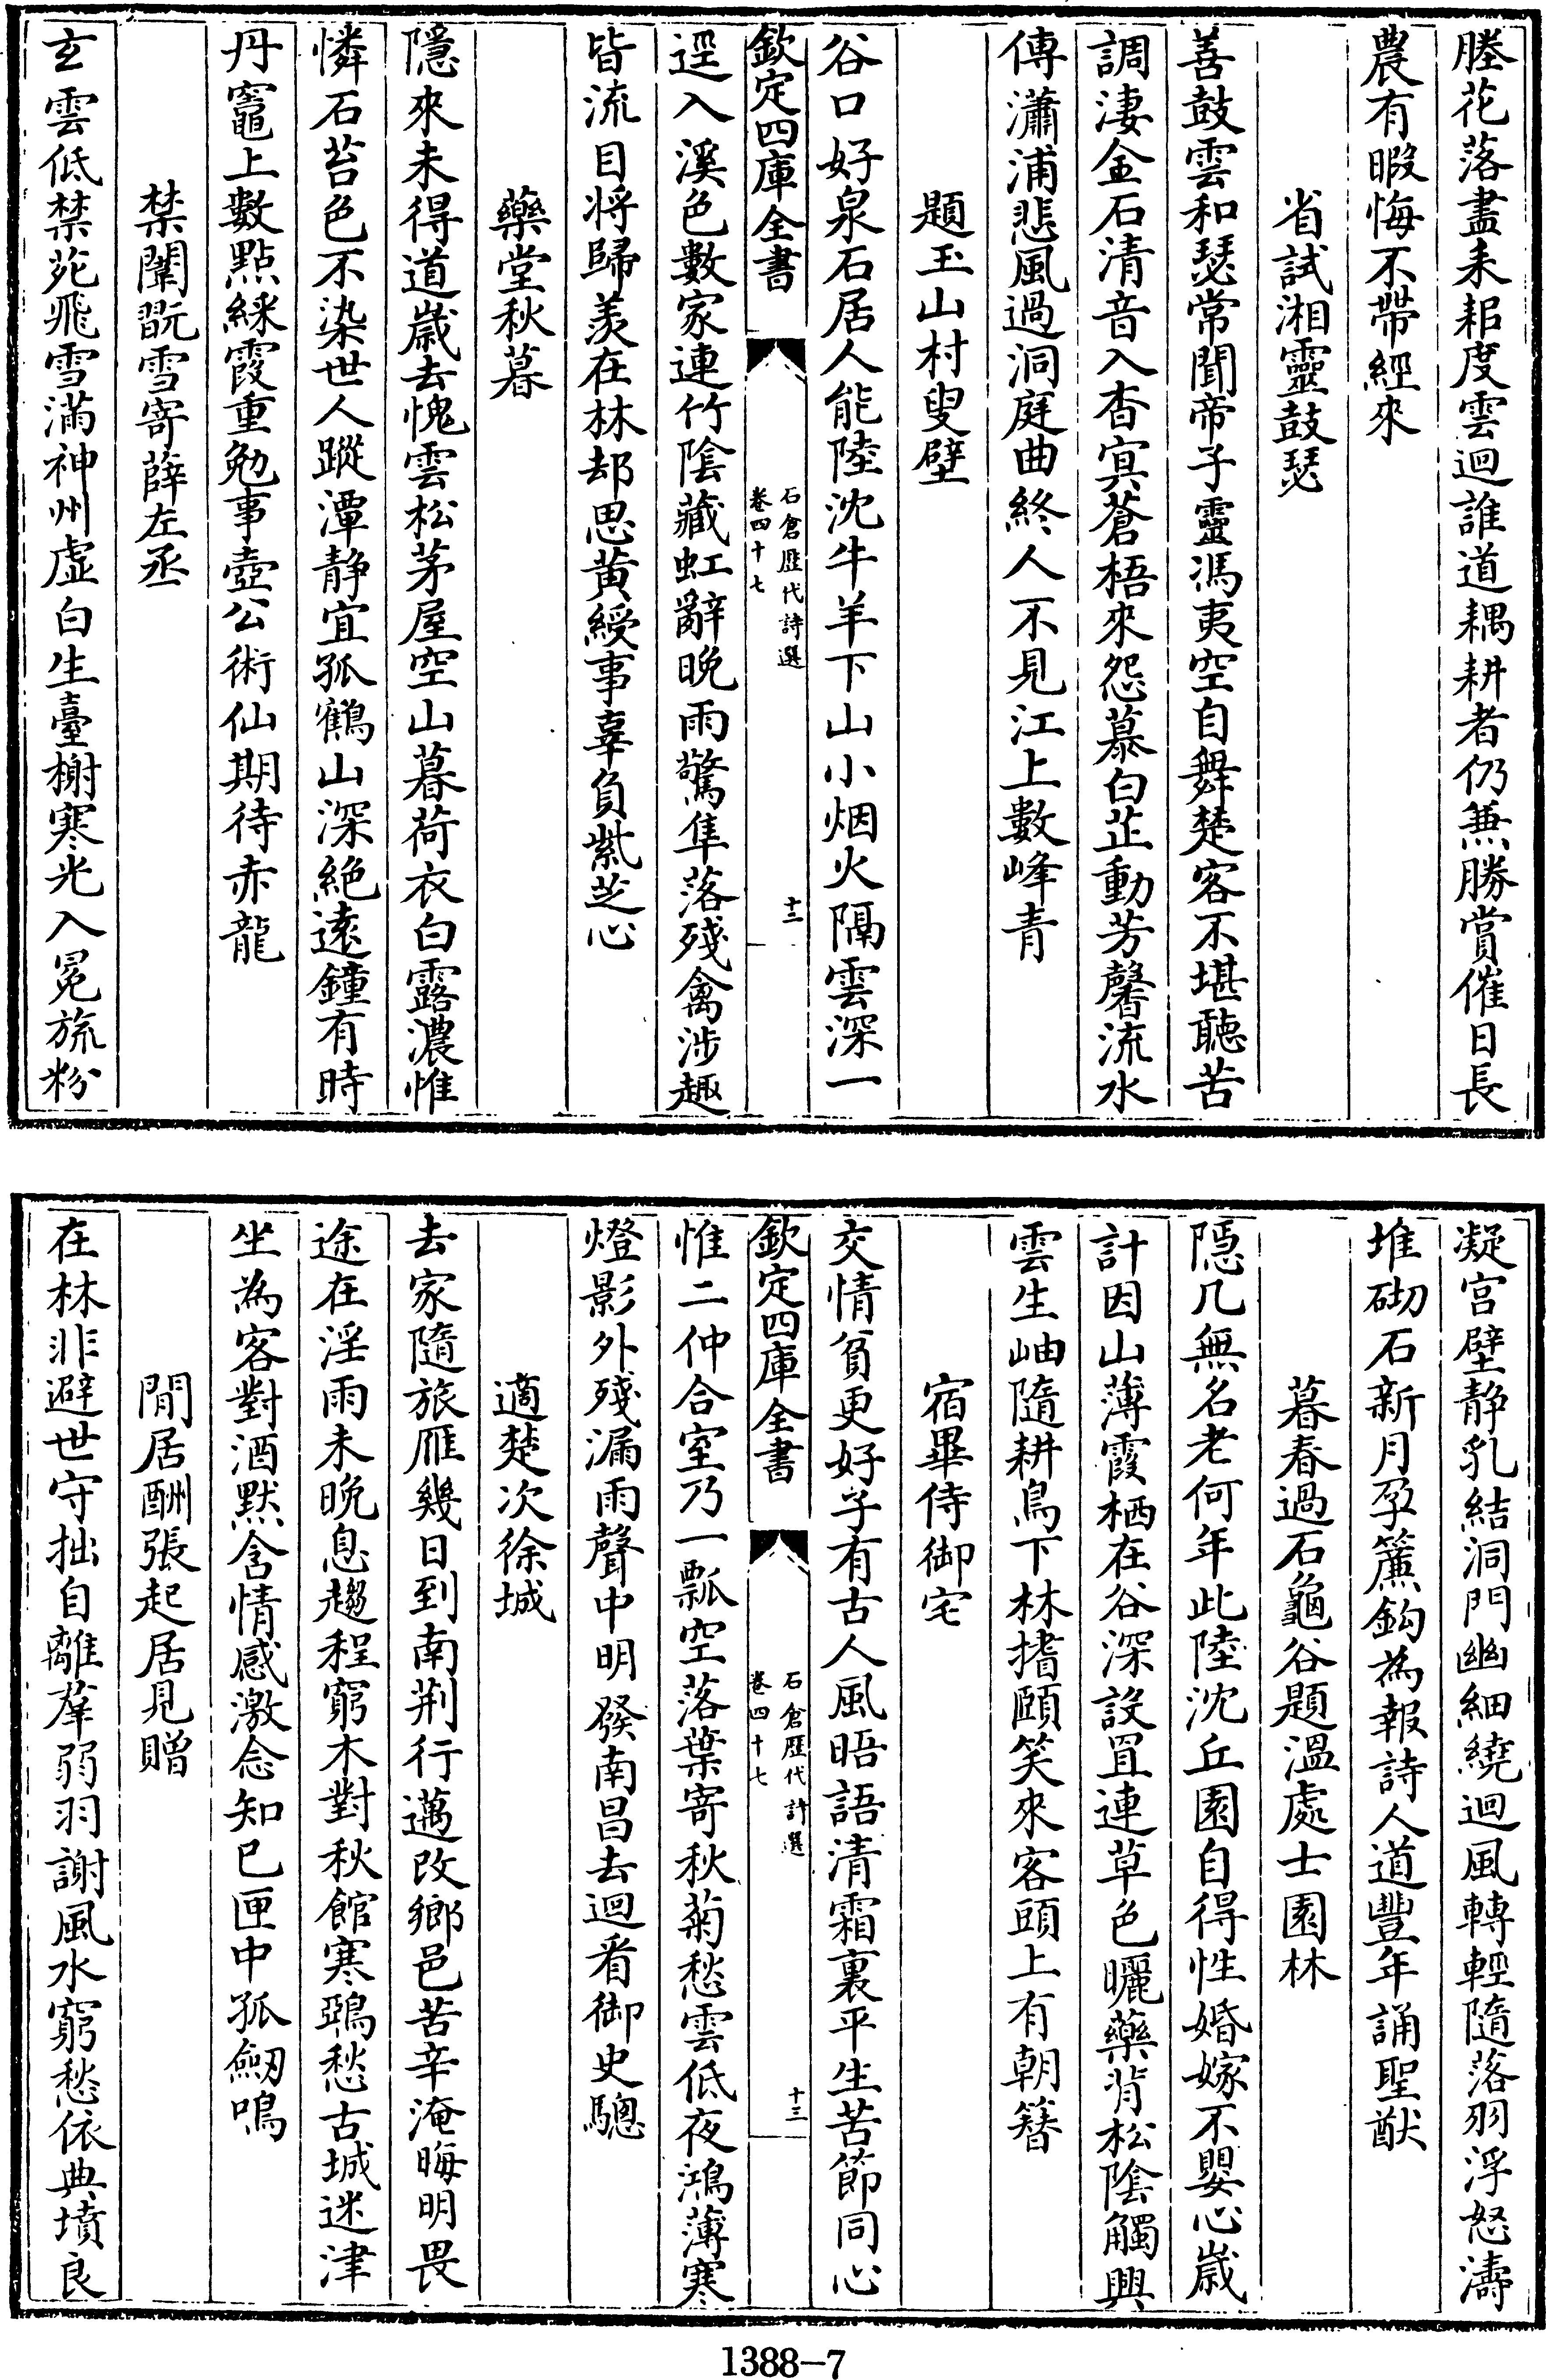 塍花落盡耒耜度雲迴誰道耦耕者仍兼勝賞催日長
農有暇悔不帶經來
省試湘靈鼓瑟
善鼓雲和瑟常聞帝子靈馮夷空自舞楚客不堪聽苦
調淒金石清音入杳冥蒼梧來怨慕白芷動芳馨流水
傳瀟浦悲風過洞庭曲終人不見江上數峰青
題玉山村叟壁
谷口好泉石居人能陸沈牛羊下山小烟火隔雲深一
欽定四庫全書
石倉歷代詩選
卷四十七
十二
逕入溪色數家連竹陰藏虹辭晩雨驚隼落殘禽涉趣
皆流目將歸羨在林却思黃綬事辜負紫芝心
藥堂秋暮
隱來未得道歲去愧雲松茅屋空山暮荷衣白露濃惟
憐石苔色不染世人蹤潭静宜孤鶴山深絶遠鐘有時
丹竈上數點綵霞重勉事壺公術仙期待赤龍
禁闈翫雪寄薛左丞
玄雲低禁苑飛雪滿神州虚白生臺榭寒光入冕旒粉
凝宫壁静乳結洞門幽細繞迴風轉輕隨落羽浮怒濤
堆砌石新月孕簾鈎為報詩人道豐年誦聖猷
暮春過石龜谷題溫處士園林
隠几無名老何年此陸沈丘園自得性婚嫁不嬰心歲
計因山薄霞栖在谷深設罝連草色曬藥背松陰觸興
雲生岫隨耕鳥下林搘頤笑來客頭上有朝簪
宿畢侍御宅
交情貧更好子有古人風晤語清霜裏平生苦節同心
欽定四庫全書
石倉歷代詩選
卷四十七
十三
惟二仲合室乃一瓢空落葉寄秋菊愁雲低夜鴻薄寒
燈影外殘漏雨聲中明發南昌去迴看御史驄
適楚次徐城
去家隨旅雁幾日到南荆行邁改鄉邑苦辛淹晦明畏
途在淫雨未晩息趨程窮木對秋館寒鵶愁古城迷津
坐為客對酒黙含情感激念知已匣中孤劒鳴
閒居酬張起居見贈
在林非避世守拙自離羣弱羽謝風水窮愁依典墳良
1388-7